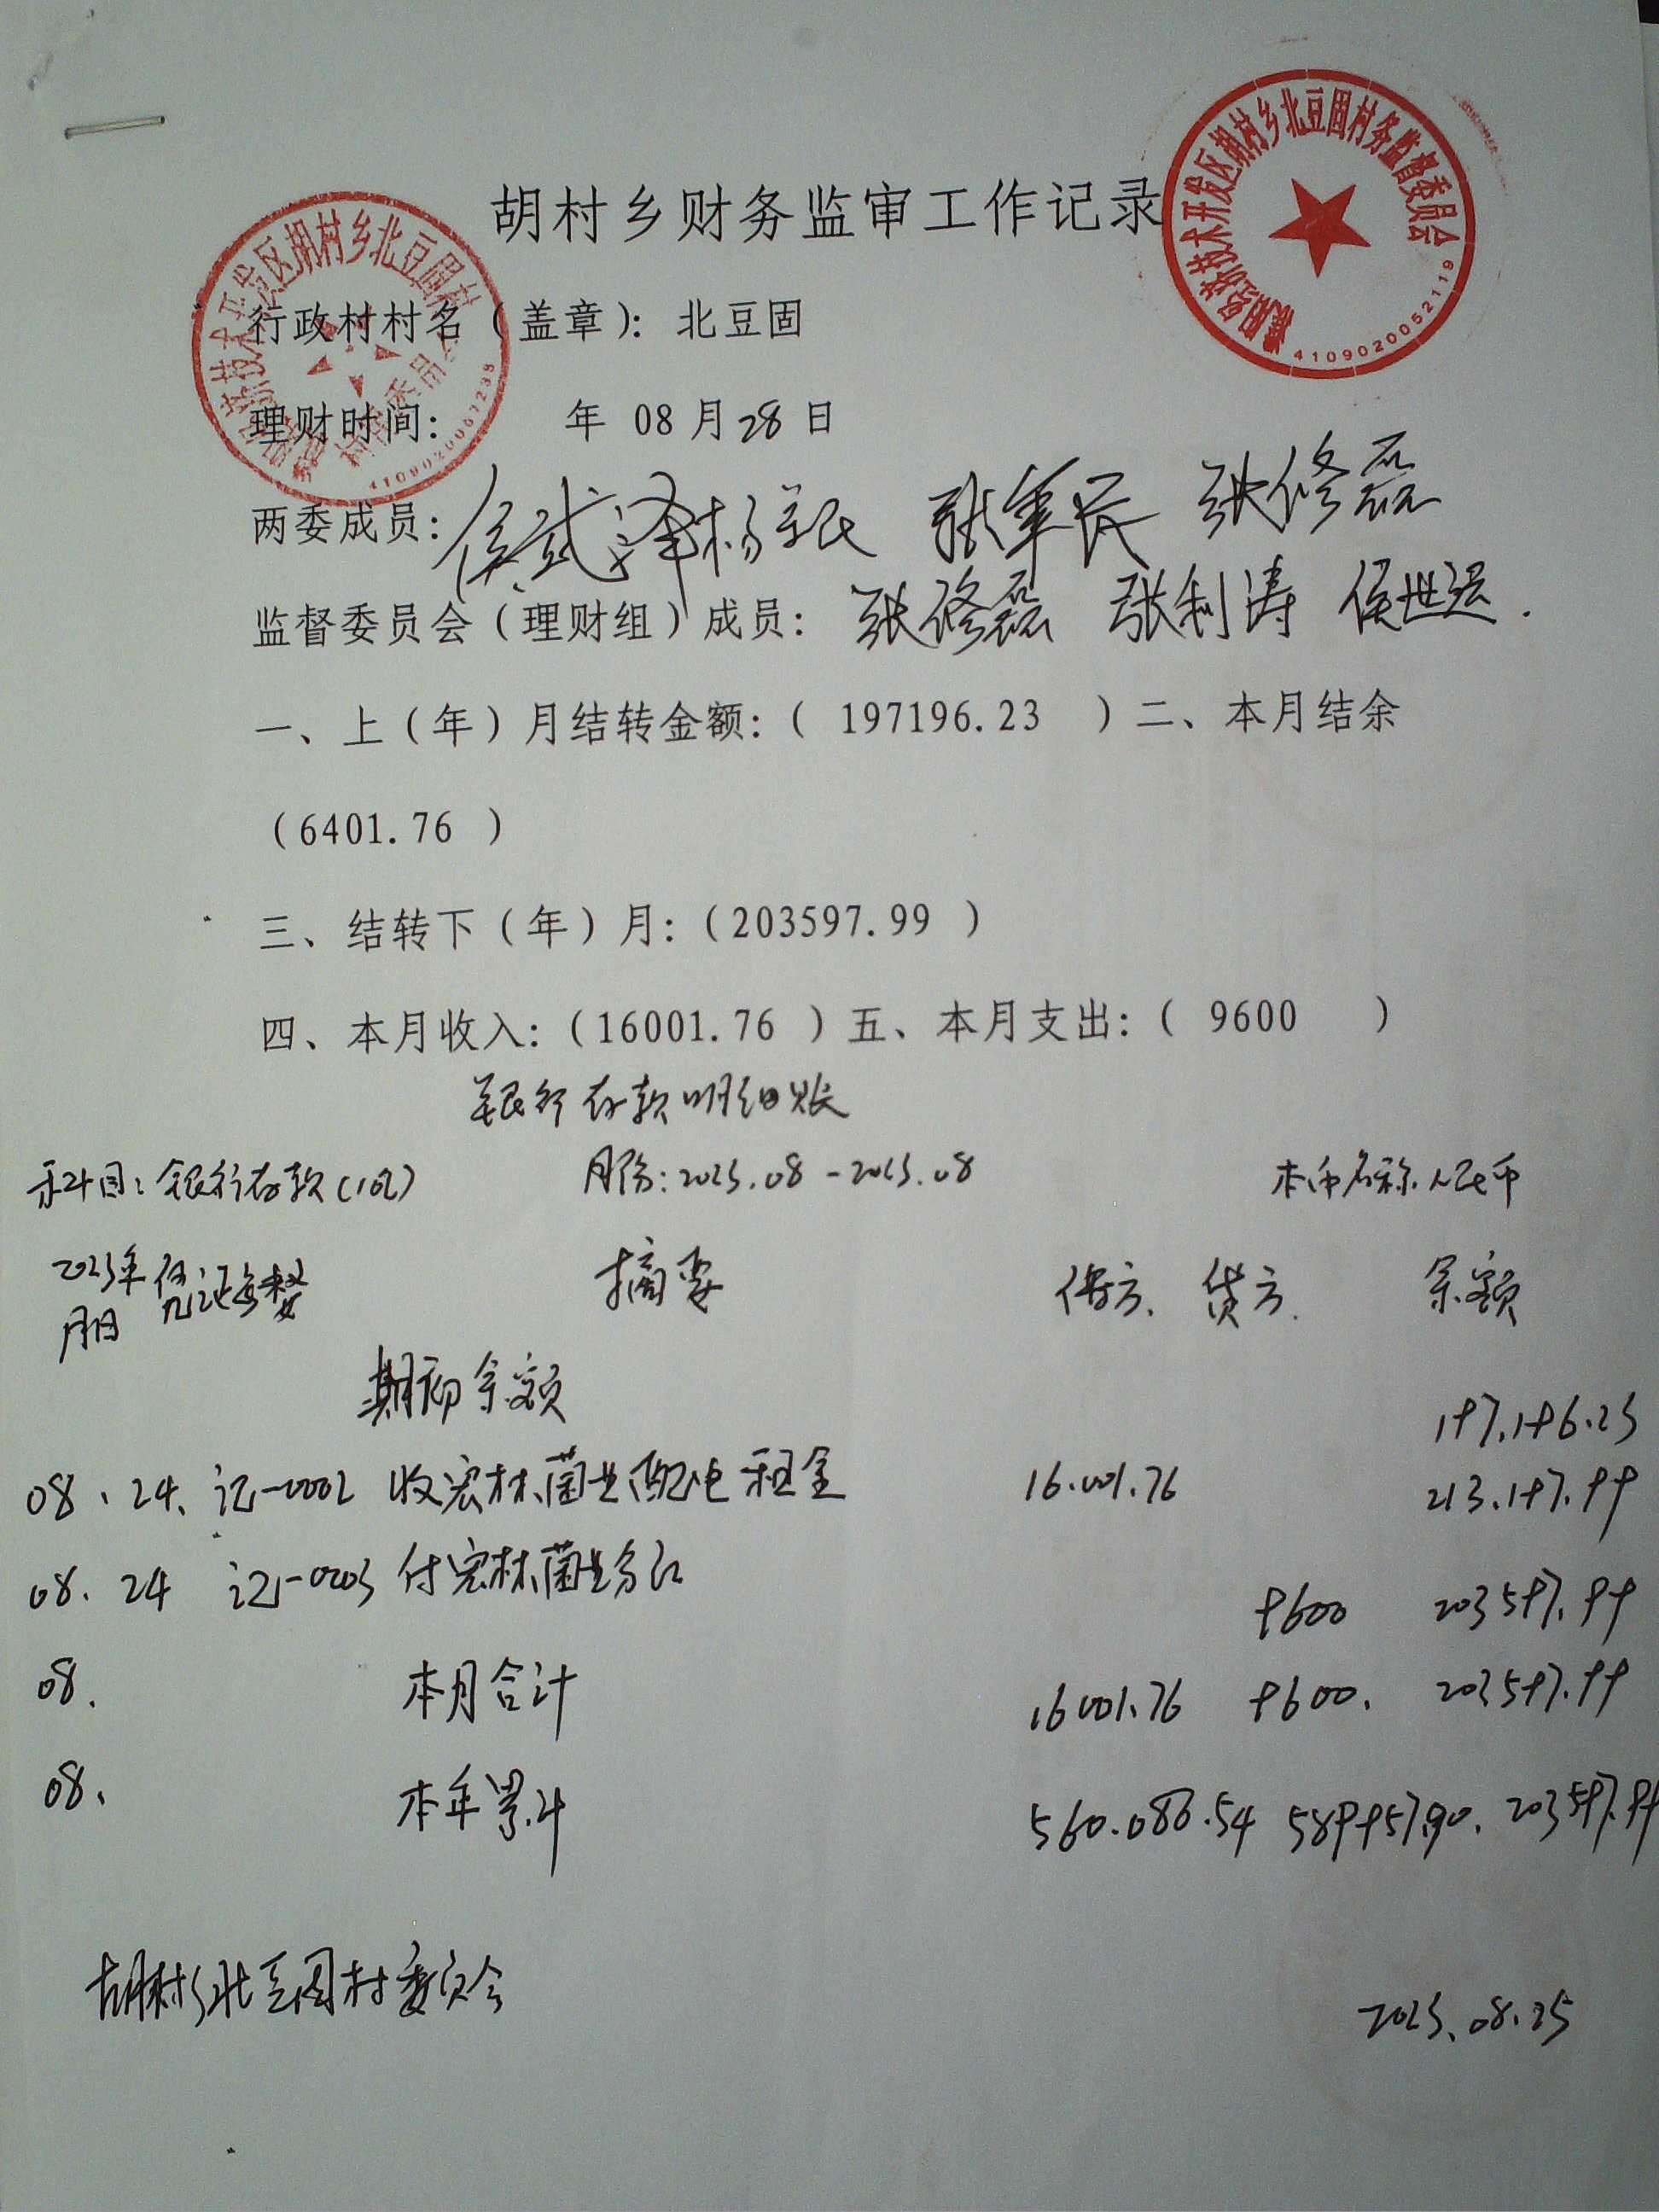 胡村乡财务监审工作记录
行政村村名（盖章）：北豆固
理财时间： 年 08 月 28 日
两委成员： 张军民 张修磊
监督委员会（理财组）成员： 张修磊 张利涛 侯世运
一、上（年）月结转金额：（ 197196.23 ）二、本月结余
（6401.76 ）
三、结转下（年）月：（203597.99 ）
四、本月收入：（16001.76 ）五、本月支出：（ 9600 ）
银行存款明细账
科目：银行存款(102) 月份：2023.08-2023.08 本币名称 人民币
2023年 凭证号数 摘要 借方 贷方 余额
月日
期初余额 197,196.23
08.24 记-0002 收宏林菌业配电租金 16,001.76 213,197.99
08.24 记-0003 付宏林菌业分红 9600 203597.99
08. 本月合计 16001.76 9600. 203597.99
08. 本年累计 560.086.54 589957.90. 203597.99
胡村乡北豆固村委员会 2023.08.25
胡村乡北豆固村务监督委员会
4109020052119
区胡村乡北豆固村